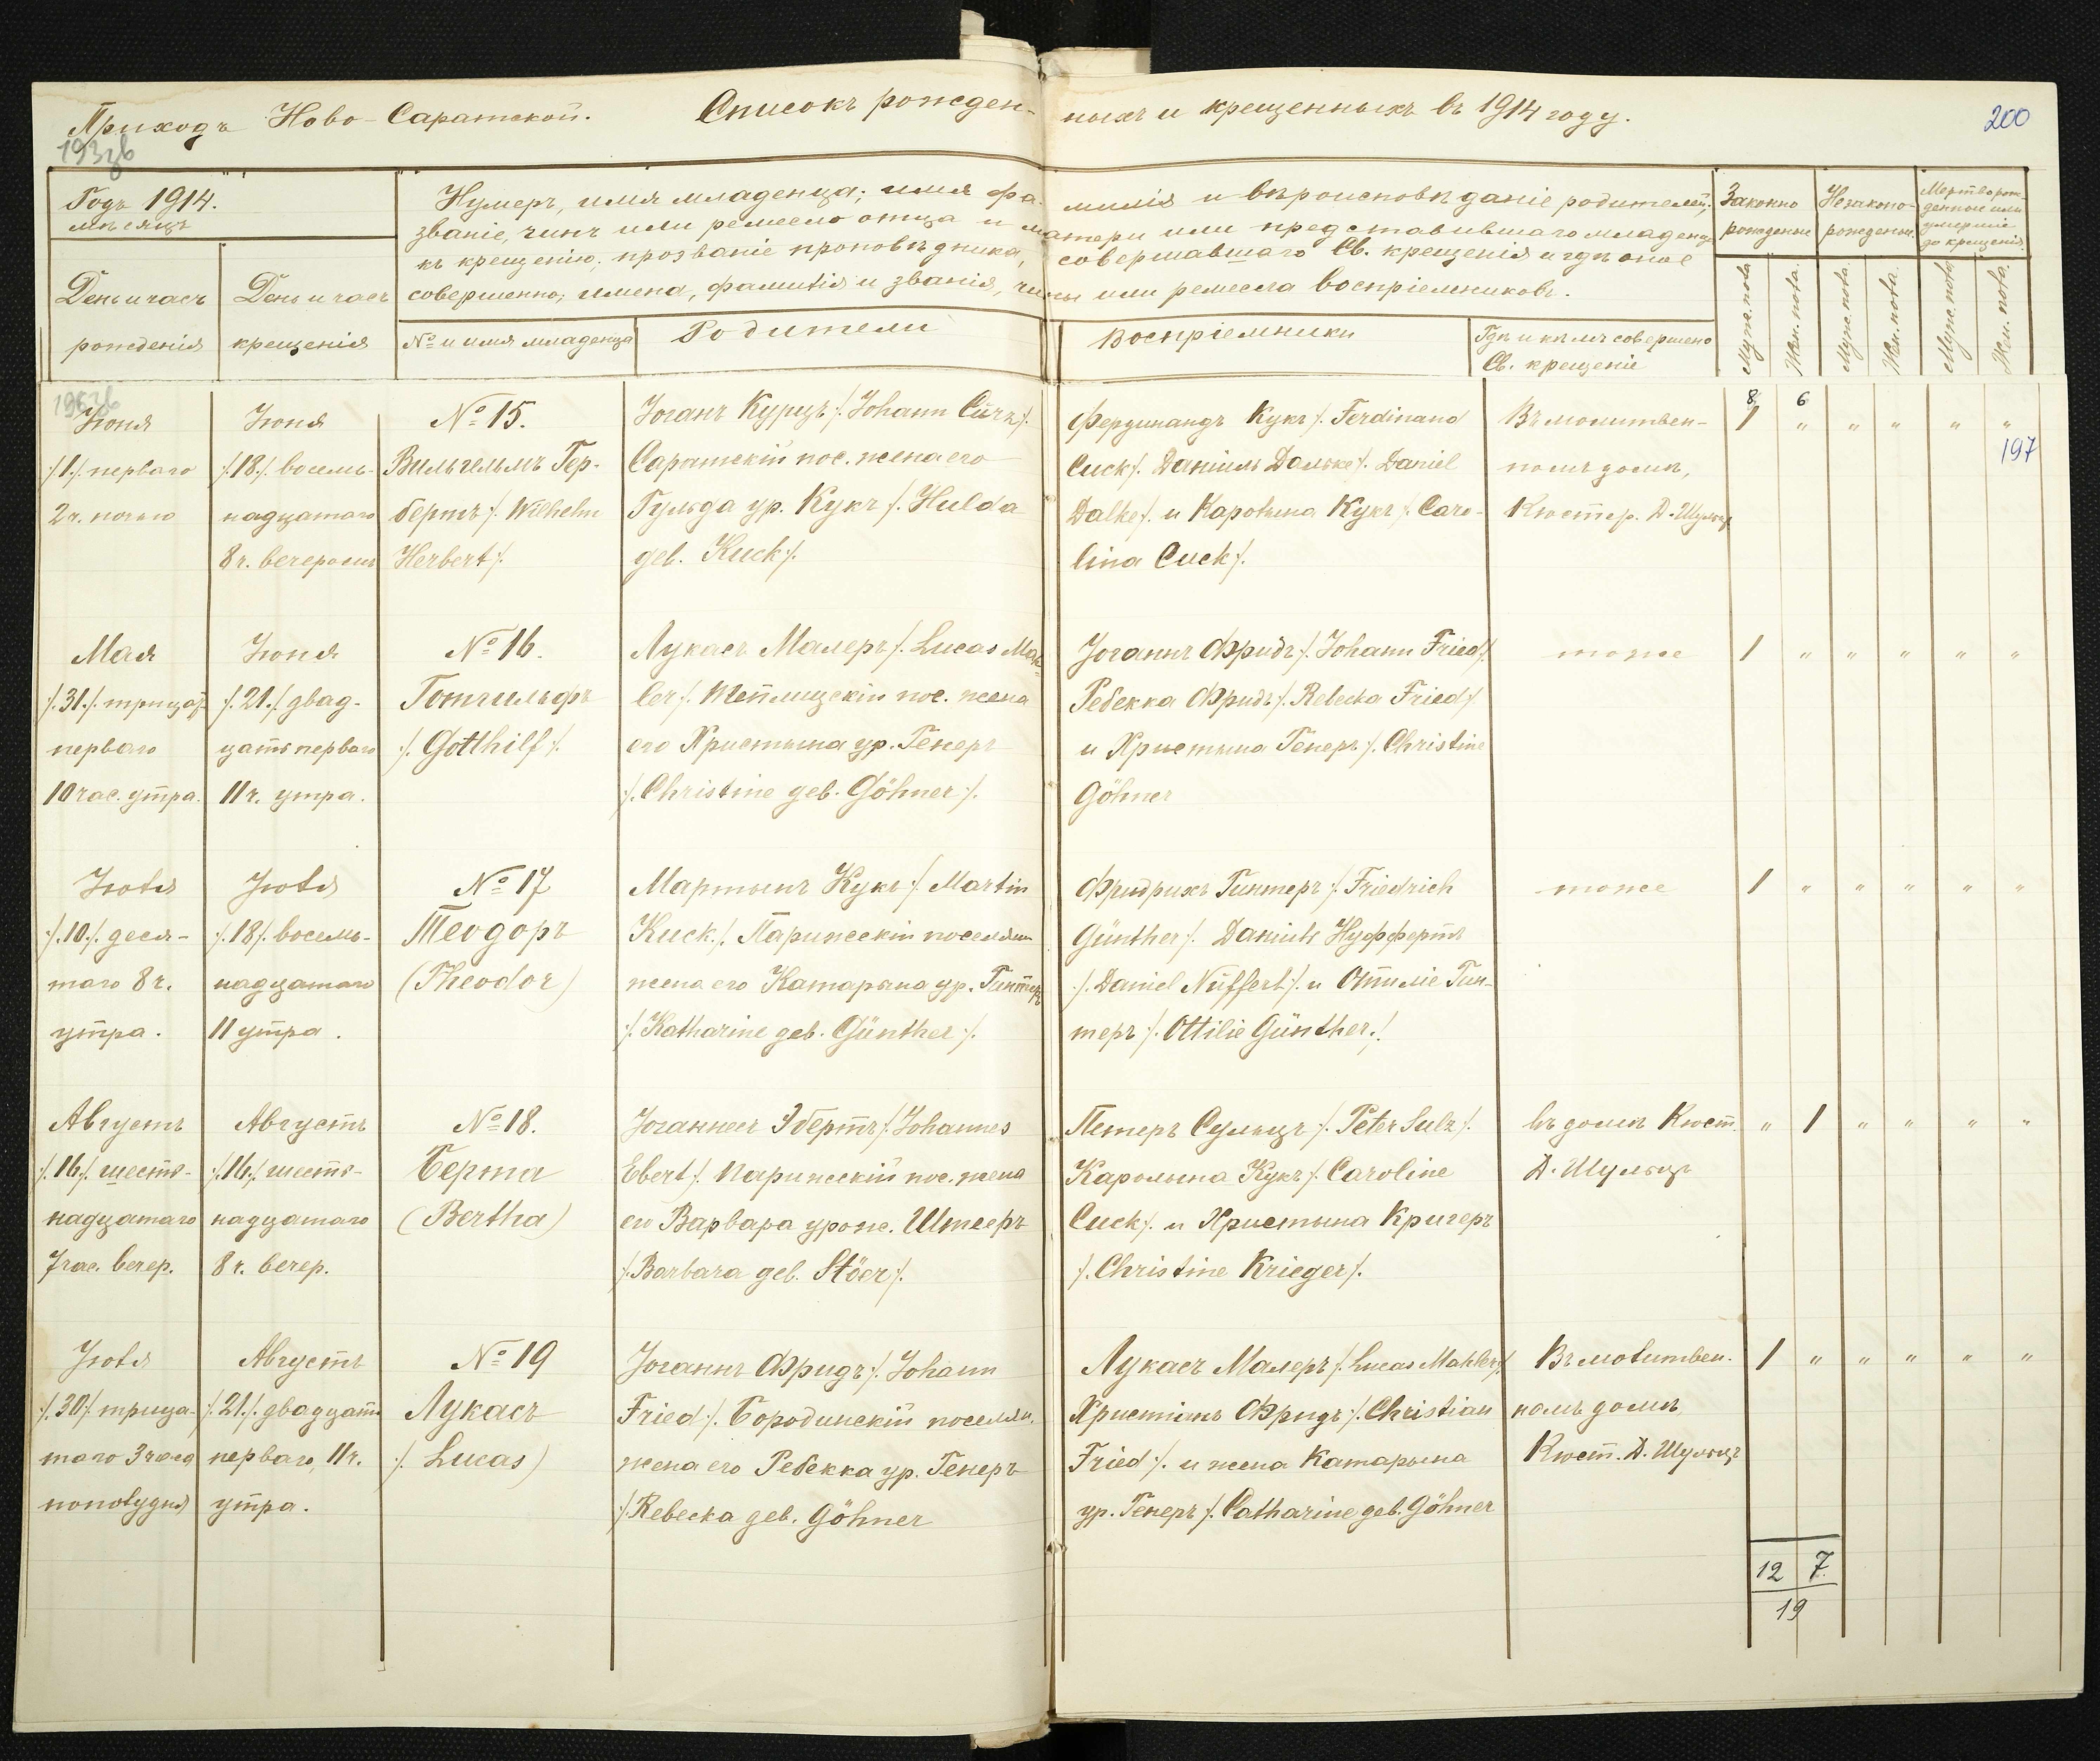 Приходъ Ново-Саратской. Списокъ рожден-
ныхъ и крещенныхъ въ 1914 году.
200
Годъ 1914.
мѣсяцъ
День и часъ
рожденія
День и часъ
крещенія
Нумеръ, имя младенца; имя фа-
милія и вѣроисповѣданіе родителей;
званіе, чинъ или ремесло отца и матери или представившаго младенца
къ крещенію; прозваніе проповѣдника, совершавшаго Св. крещенія и гдѣ оное
совершенно; имена, фамилія и званія, чины или ремесла воспріемниковъ.
№ и имя младенца
Родители
Воспріемники
Гдѣ и кѣмъ совершено
Св. крещеніе
Законно
рожденные
Незаконно-
рожденные
Мертворож-
денные или
умершіе
до крещенія
Муж. пола
Жен. пола.
Муж. пола.
Жен. пола.
Муж. пола
Жен. пола.
Іюня
/.1./. перваго
2 ч. ночью
Іюня
/.18./. восемь-
надцатаго
8 ч. вечеромъ
№ 15.
Вильгельмъ Гер-
бертъ /. Wilhelm
Herbert /.
Іоганъ Курцъ /. Johann Curz /.
Саратскій пос. жена его
Гульда ур. Кукъ /. Hulda
geb. Kuck /.
Фердинандъ Кукъ /. Ferdinand
Cuck /. Даніилъ Дальке /. Daniel
Dalke /. и Каролина Кукъ /. Caro-
lina Cuck /.
Въ молитвен-
номъ домѣ,
Кюстер. Д. Шульцъ
8 6
1 " " " " "
197
Мая
/.31./. тридцать
перваго
10 час. утра.
Іюня
/.21./. двад-
цать перваго
11 ч. утра.
№ 16.
Готгильфъ
/. Gotthilf /.
Лукасъ Малеръ /. Lucas Mah-
ler /. Теплицскій пос. жена
его Христина ур. Генеръ
/. Christine geb. Göhner /.
Іоганнъ Фридъ /. Johann Fried /.
Ребекка Фридъ /. Rebecka Fried /.
и Христина Генеръ /. Christine
Göhner
тоже
1 " " " " "
Іюля
/.10./. деся-
таго 8 ч.
утра.
Іюля
/.18./. восемь-
надцатаго
11 утра.
№ 17
Теодоръ
(Theodor)
Мартынъ Кукъ /. Martin
Kuck. /. Парижскій поселян
жена его Катарина ур. Гинтеръ
/. Katharine geb. Günther /.
Фридрихъ Гинтеръ /. Friedrich
Günther /. Даніилъ Нуффертъ
/. Daniel Nüffert /. и Оттиліе Гин-
теръ /. Ottilie Günther. /.
тоже
1 " " " " "
Августъ
/.16./. шесть-
надцатаго
7 час. вечер.
Августъ
/.16./. шесть-
надцатаго
8 ч. вечер.
№ 18.
Берта
(Bertha)
Іоганнесъ Эбертъ /. Johannes
Ebert /. Парижскій пос. жена
его Варвара урож. Штееръ
/. Barbara geb. Stöer /.
Петеръ Сульцъ /. Peter Sulz /.
Каролина Кукъ /. Caroline
Cuck /. и Христина Кригеръ
/. Christine Krieger /.
въ домѣ Кюст.
Д. Шульцъ
" 1 " " " "
Іюля
/.30./. трица-
таго 3 часа
пополудня
Августъ
/.21./. двадцать
перваго, 11 ч.
утра.
№ 19
Лукасъ
/. Lucas)
Іоганнъ Фридъ /. Johann
Fried /. Бородинскій поселян.
жена его Ребекка ур. Генеръ
/. Rebecka geb. Göhner
Лукасъ Малеръ /. Lucas Mahler /.
Христіанъ Фридъ /. Christian
Fried /. и жена Катарина
ур. Генеръ /. Catharine geb. Göhner
Въ молитвен.
номъ домѣ,
Кюст. Д. Шульцъ
1 " " " " "
12 7.
19